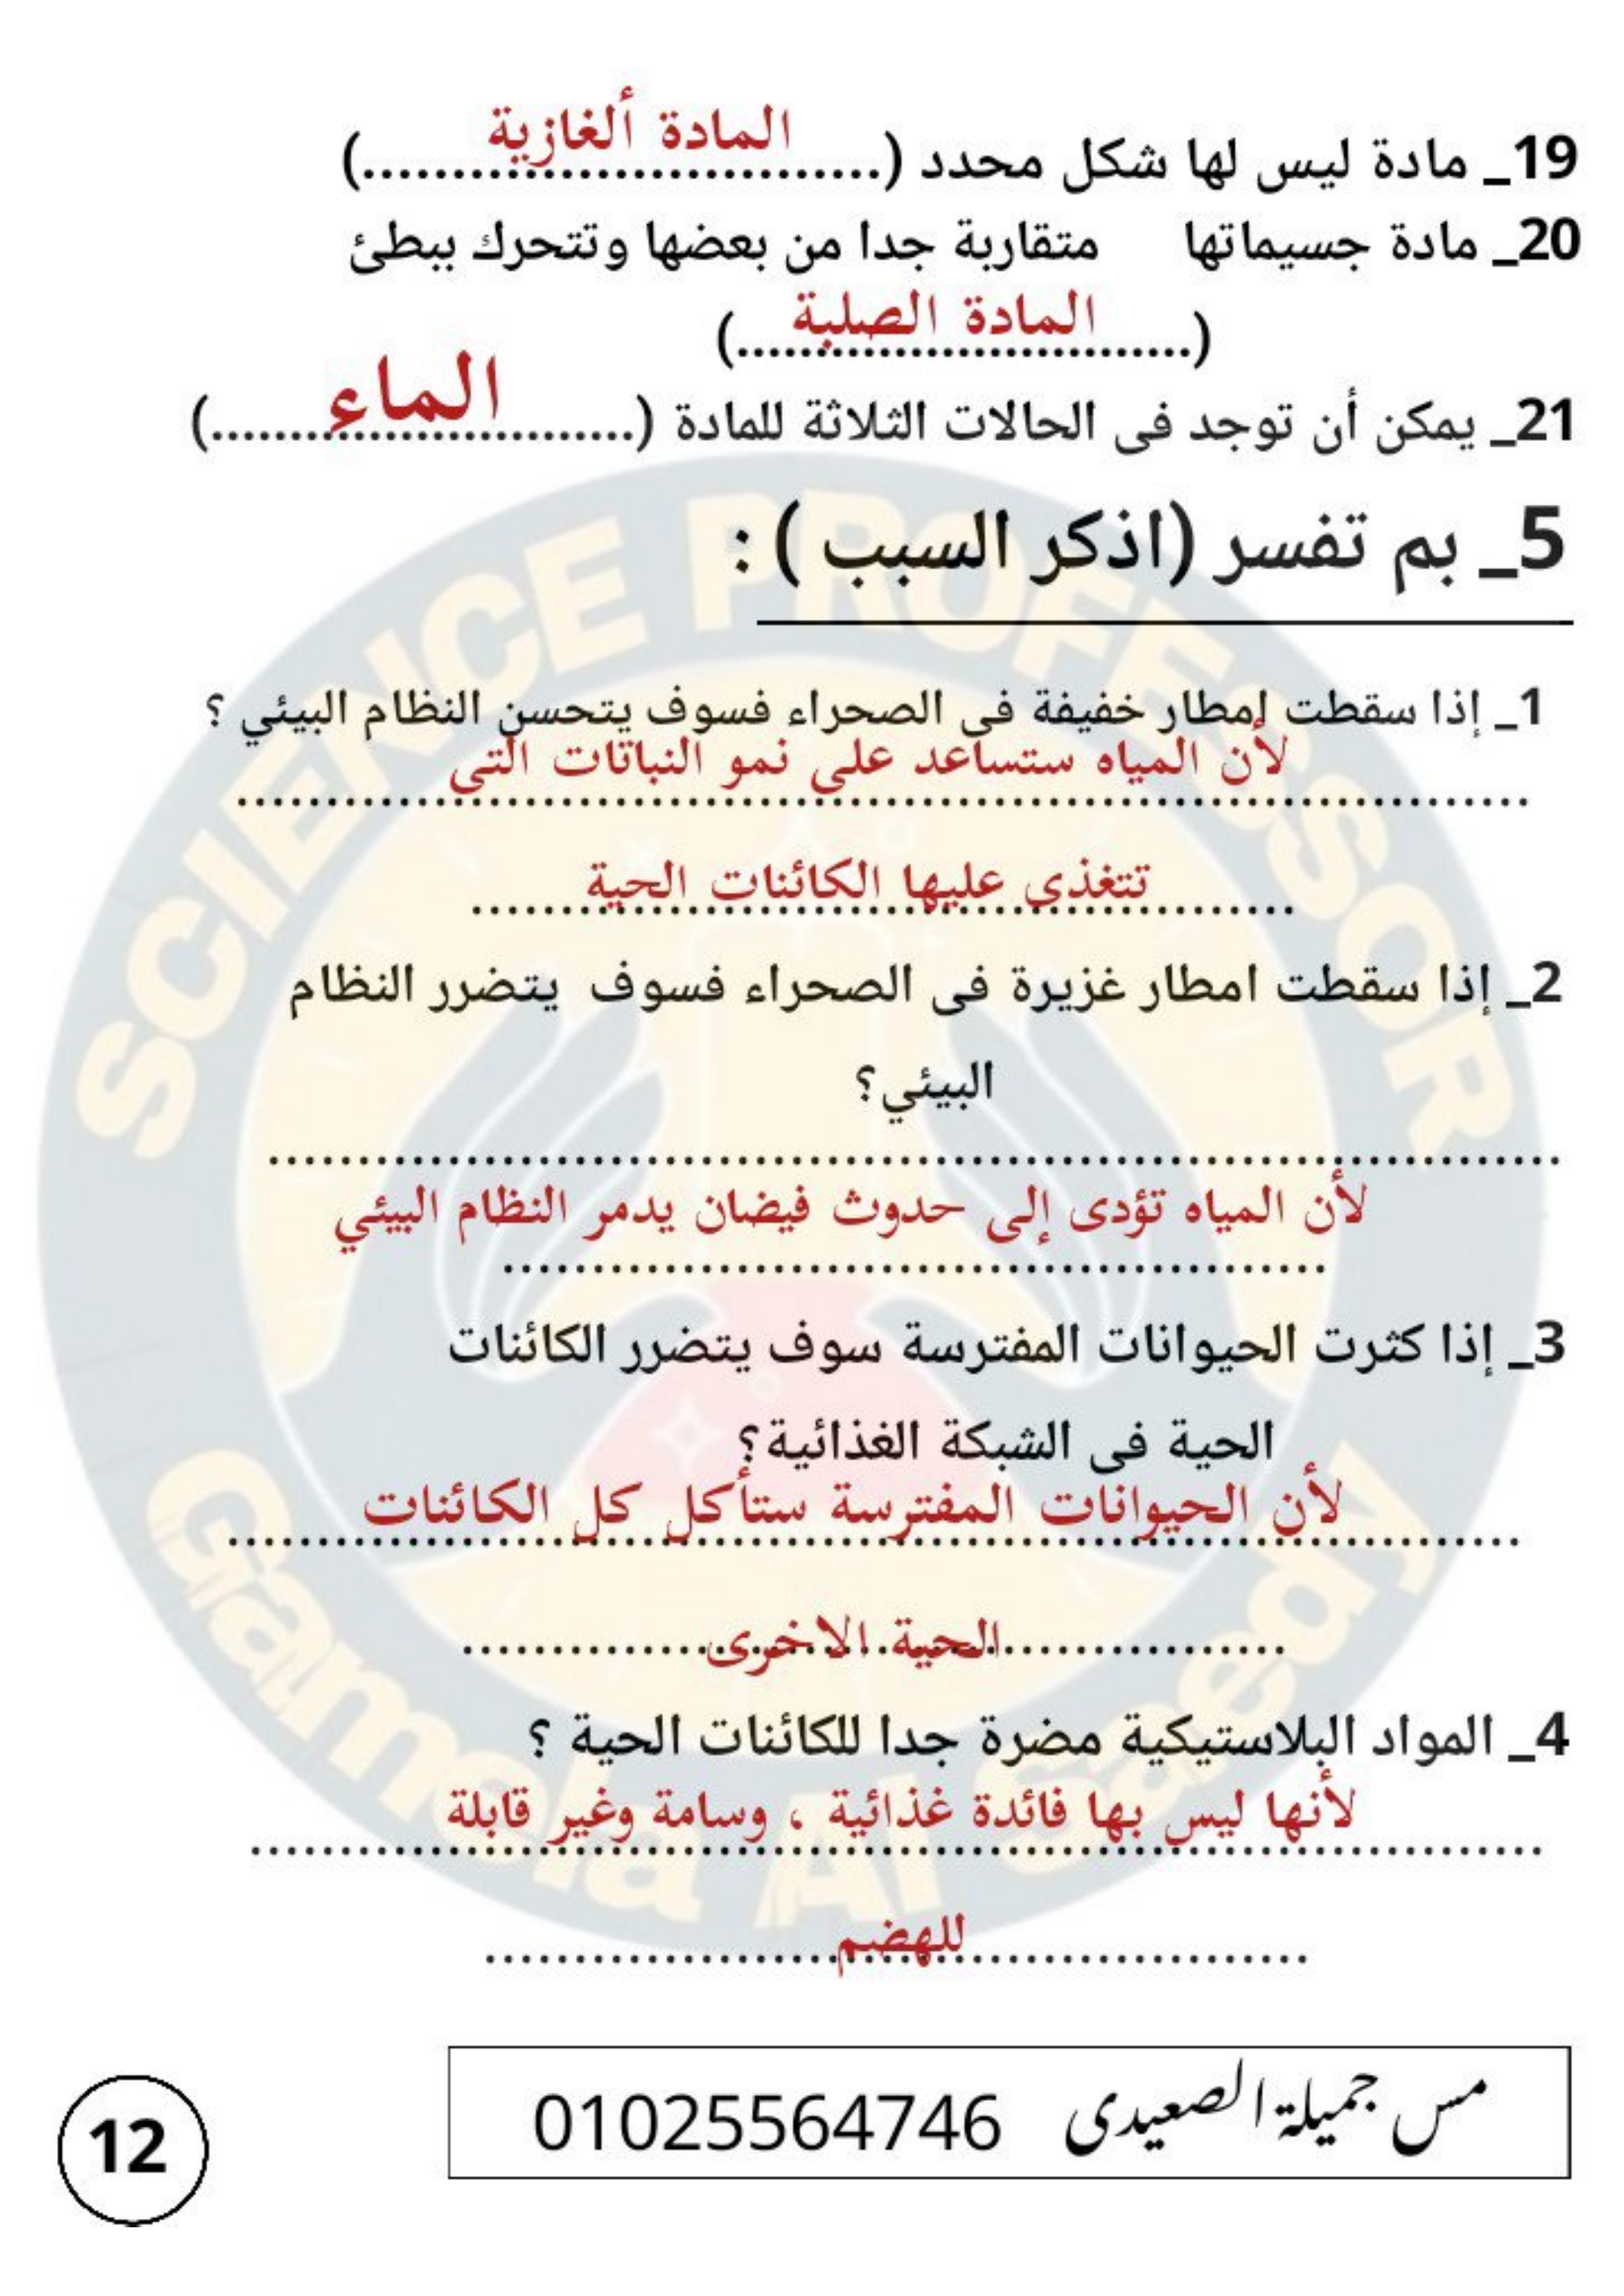 19_ مادة ليس لها شكل محدد (..............................)
المادة ألغازية
20_ مادة جسيماتها متقاربة جدا من بعضها وتتحرك ببطئ
(..............................)
المادة الصلبة
21_ يمكن أن توجد فى الحالات الثلاثة للمادة (..............................)
الماء
5_ بم تفسر (اذكر السبب ) :
1_ إذا سقطت إمطار خفيفة فى الصحراء فسوف يتحسن النظام البيئي ؟
لأن المياه ستساعد على نمو النباتات التى
تتغذى عليها الكائنات الحية
2_ إذا سقطت امطار غزيرة فى الصحراء فسوف يتضرر النظام
البيئي؟
لأن المياه تؤدى إلى حدوث فيضان يدمر النظام البيئي
3_ إذا كثرت الحيوانات المفترسة سوف يتضرر الكائنات
الحية فى الشبكة الغذائية؟
لأن الحيوانات المفترسة ستأكل كل الكائنات
الحية الاخرى
4_ المواد البلاستيكية مضرة جدا للكائنات الحية ؟
لأنها ليس بها فائدة غذائية ، وسامة وغير قابلة
للهضم
مس جميلة الصعيدى 01025564746
12
SCIENCE PROFESSOR
Gamela Al Saedy